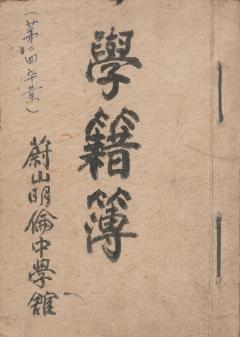 學籍簿
(第二回卒業)
蔚山明倫中學館